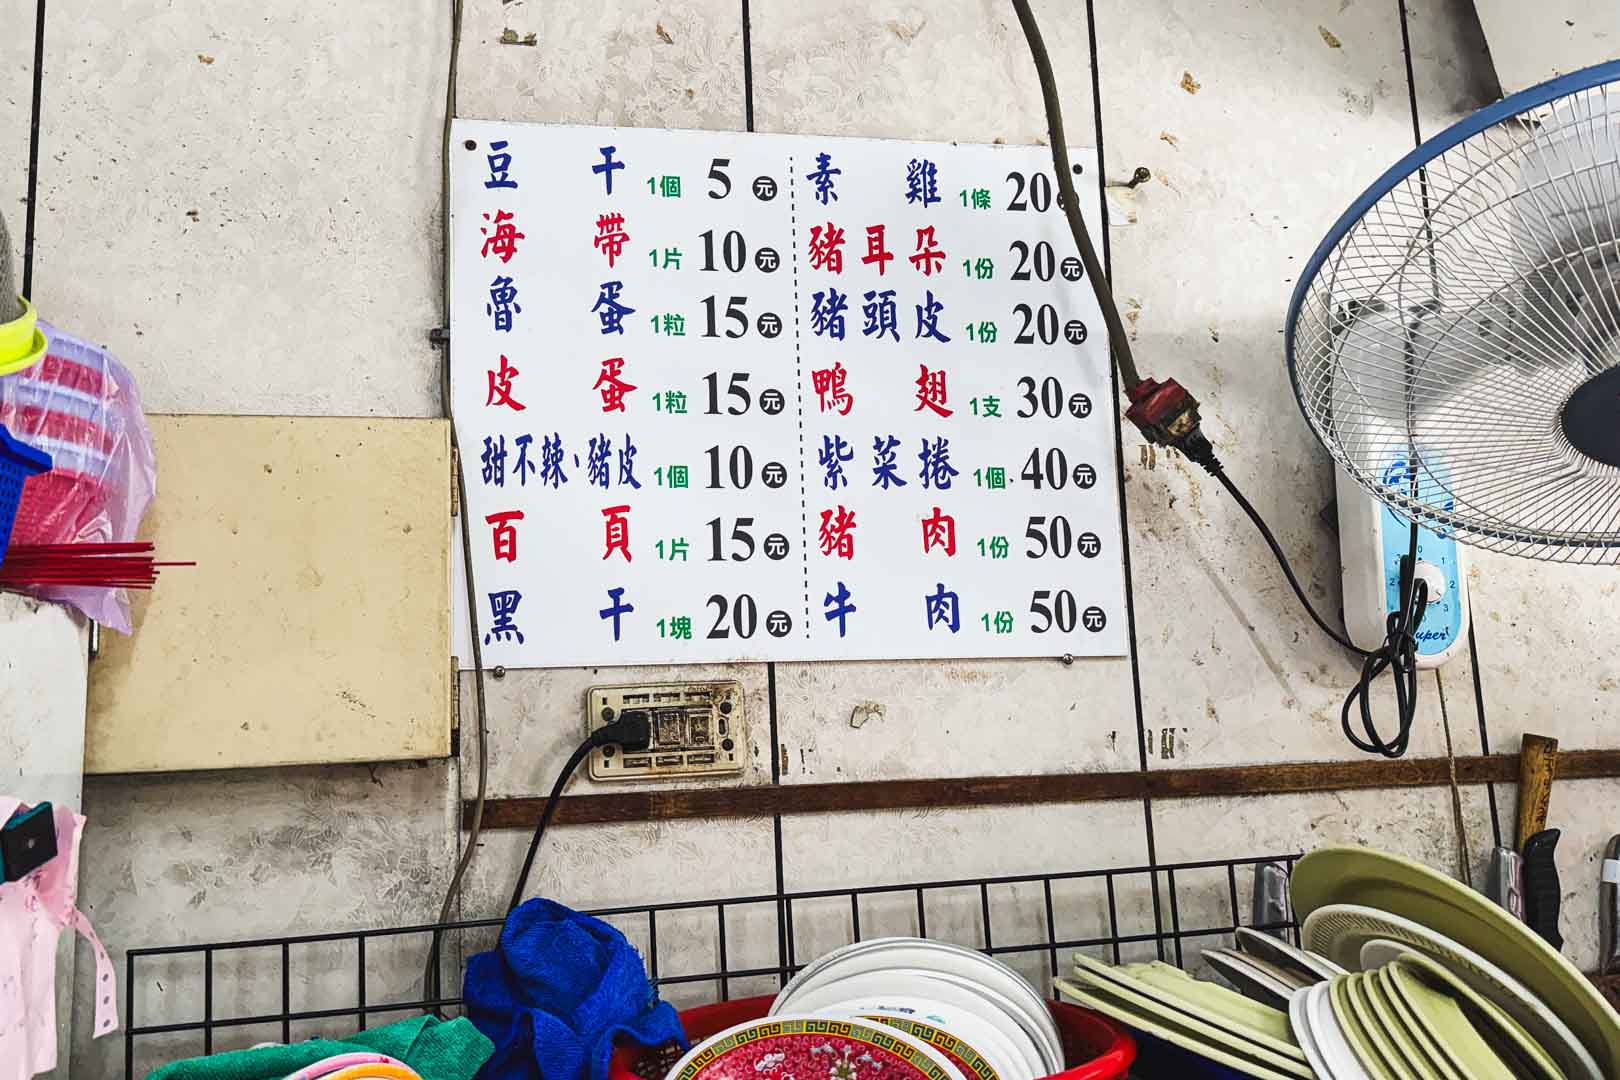 豆干 1個 5元
海帶 1片 10元
魯蛋 1粒 15元
皮蛋 1粒 15元
甜不辣、豬皮 1個 10元
百頁 1片 15元
黑干 1塊 20元
素雞 1條 20元
豬耳朵 1份 20元
豬頭皮 1份 20元
鴨翅 1支 30元
紫菜捲 1個 40元
豬肉 1份 50元
牛肉 1份 50元